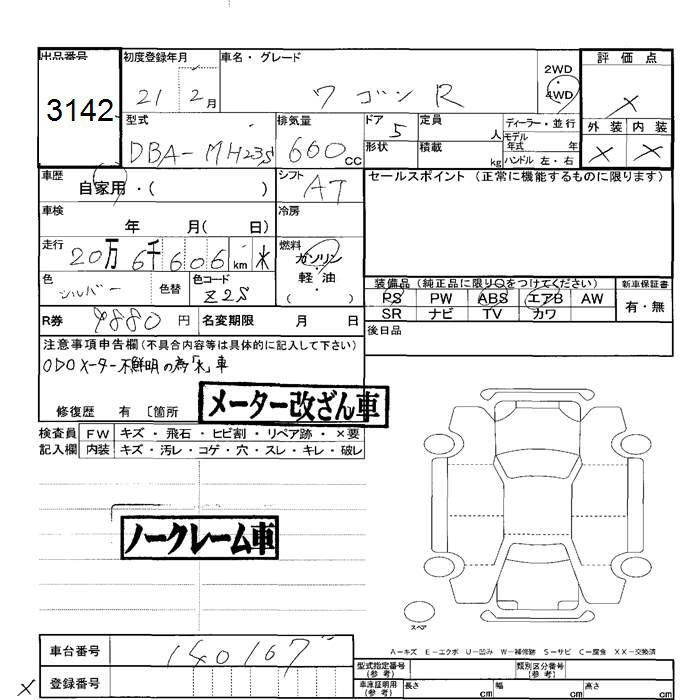 出品番号
3142
初度登録年月
21 2月
車名・グレード
ワゴンR
2WD
4WD
評価点
×
外装 内装
× ×
型式
DBA-MH23S
排気量
660cc
ドア
5
定員
人
ディーラー・並行
モデル年式 年
形状
積載
kg
ハンドル 左・右
車歴
自家用・( )
シフト
AT
セールスポイント (正常に機能するものに限ります)
車検
年 月( 日)
冷房
走行
20万6千606km 木
燃料
ガソリン
軽油
( )
色
シルバー
色替
色コード
Z2S
装備品(純正品に限り○をつけてください)
PS PW ABS エアB AW
SR ナビ TV カワ
新車保証書
有・無
R券 9880円
名変期限 月 日
後日品
注意事項申告欄(不具合内容等は具体的に記入して下さい)
ODOメーター不鮮明の為「木」車
メーター改ざん車
修復歴 有 〔箇所
検査員記入欄
FW キズ・飛石・ヒビ割・リペア跡・×要
内装 キズ・汚レ・コゲ・穴・スレ・キレ・破レ
ノークレーム車
スペア
A-キズ E-エクボ U-凹み W-補修跡 S-サビ C-腐食 XX-交換済
車台番号
140167
型式指定番号(参考)
類別区分番号(参考)
× 登録番号
車庫証明用(参考)
長さ cm 幅 cm 高さ cm